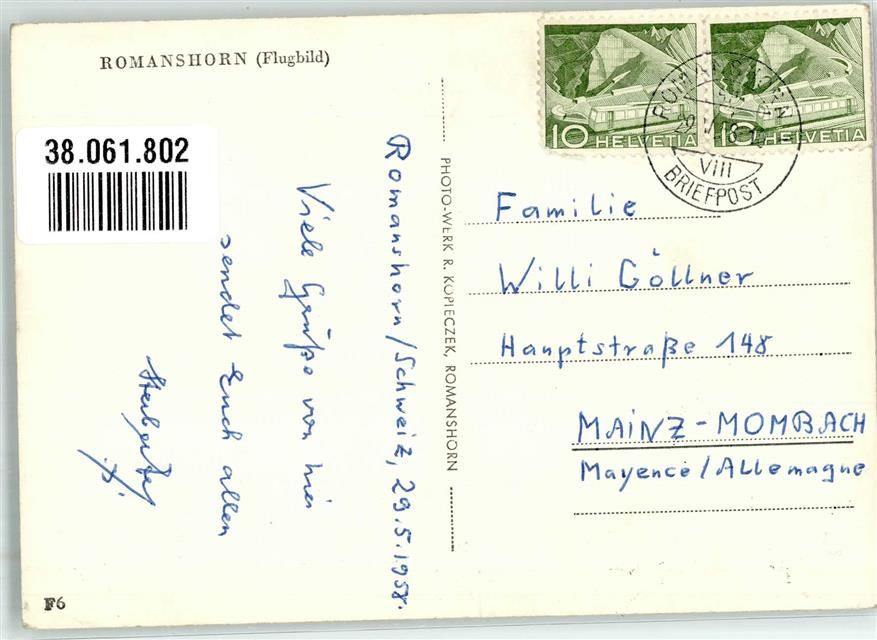 ROMANSHORN (Flugbild)
38.061.802
10 HELVETIA
10 HELVETIA
ROMANSHORN
VIII
BRIEFPOST
Romanshorn/Schweiz, 29.5.1958.
Viele Grüße von hier
sendet Euch allen
PHOTO-WERK R. KOPIECZEK, ROMANSHORN
Familie
Willi Göllner
Hauptstraße 148
MAINZ-MOMBACH
Mayence/Allemagne
F6